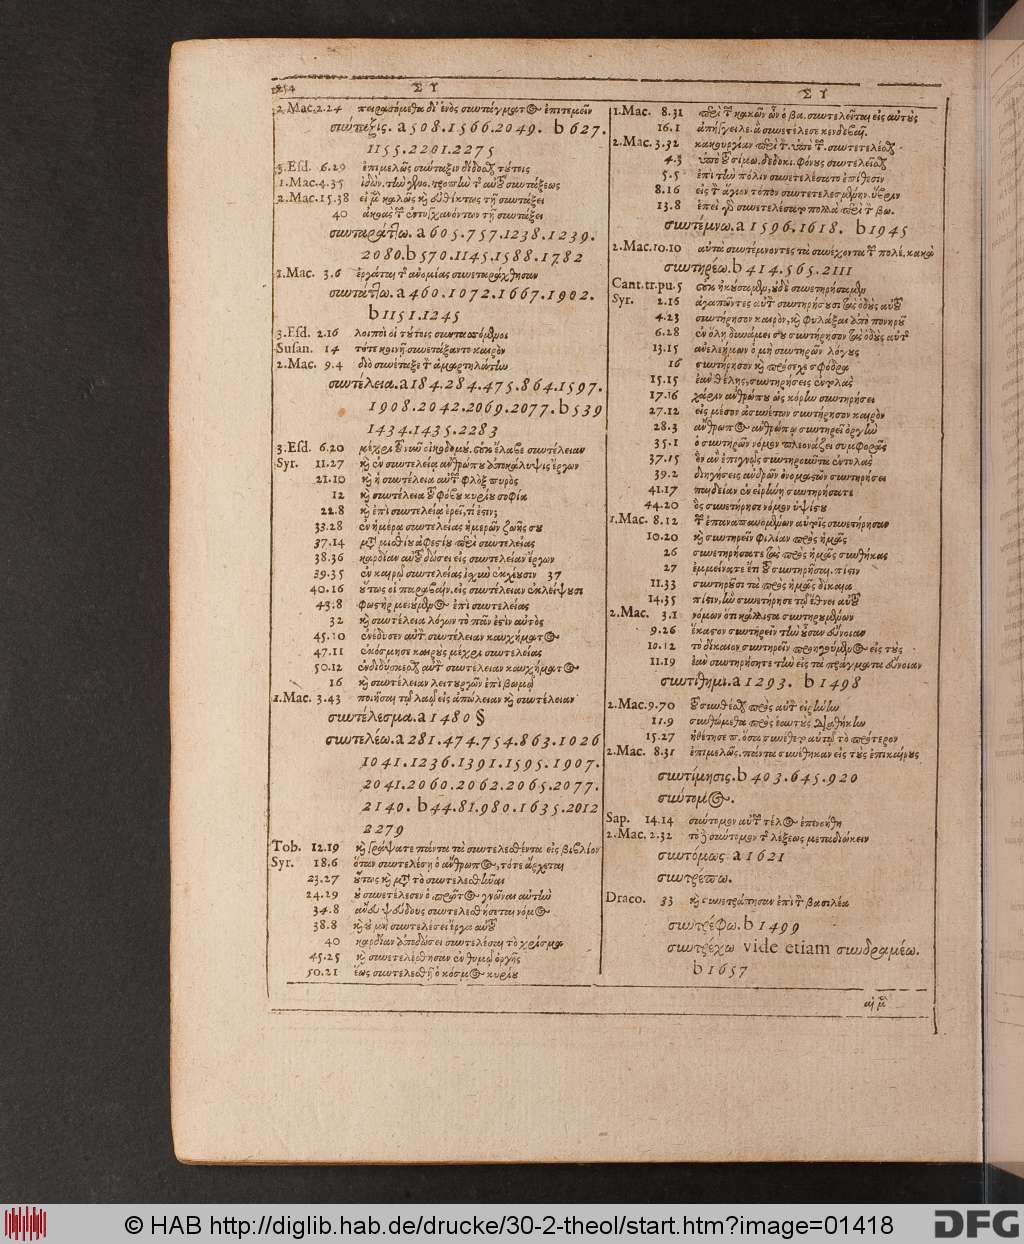 254
Σ Υ
Σ Υ
2.Mac.2.24 πειρασόμεθα δι' ἑνὸς συντάγματος ἐπιτεμεῖν
σύνταξις. a 508.1566.2049. b 627.
1155.2201.2275
3.Esd. 6.29 ἐπιμελῶς σύνταξιν δίδοσθαι τούτοις
1.Mac.4.35 ἰδὼν τὴν τροπὴν τῆς αὐτοῦ συντάξεως
2.Mac.15.38 εἰ μὲν καλῶς καὶ εὐθίκτως τῇ συντάξει
40 ἀκοὰς τῶν ἐντυγχανόντων τῇ συντάξει
συνταράττω. a 605.757.1238.1239.
2080. b 570.1145.1588.1782
1.Mac. 3.6 ἐργάται τῆς ἀνομίας συνεταράχθησαν
συντάττω. a 460.1072.1667.1902.
b 1151.1245
3.Esd. 2.16 λοιποὶ οἱ τούτοις συντασσόμενοι
Susan. 14 τότε κοινῇ συνετάξαντο καιρὸν
2.Mac. 9.4 διὸ συνέταξε τὸν ἁρματηλάτην
συντέλεια. a 184.284.475.864.1597.
1908.2042.2069.2077. b 539
1434.1435.2283
3.Esd. 6.20 μέχρι τοῦ νῦν οἰκοδομού. οὐκ ἔλαβε συντέλειαν
Syr. 11.27 καὶ ἐν συντελείᾳ ἀνθρώπου ἀποκάλυψις ἔργων
21.10 καὶ ἡ συντέλεια αὐτῶν φλὸξ πυρὸς
12 καὶ συντέλεια τοῦ φόβου κυρίου σοφία
22.8 καὶ ἐπὶ συντελείᾳ ἐρεῖ, τί ἐστιν;
33.28 ἐν ἡμέρᾳ συντελείας ἡμερῶν ζωῆς σου
37.14 περὶ συντελείας
38.36 καρδίαν αὐτοῦ δώσει εἰς συντέλειαν ἔργων
39.35 ἐν καιρῷ συντελείας ἰσχὺν ἐκχέουσιν 37
40.16 οὕτως οἱ συντέλειαν ἐκλείψουσι
43.8 φωστὴρ μειούμενος ἐπὶ συντελείας
32 καὶ συντέλεια λόγων τὸ πᾶν ἐστὶν αὐτὸς
45.10 ἐνέδυσεν αὐτὸν συντέλειαν καυχήματος
47.11 ἐκόσμησε καιροὺς μέχρι συντελείας
50.12 ἐνδιδύσκεσθαι αὐτὸν συντέλειαν καυχήματος
16 καὶ συντέλειαν λειτουργῶν ἐπὶ βωμῷ
1.Mac. 3.43 ποιῆσαι τῷ λαῷ εἰς ἀπώλειαν καὶ συντέλειαν
συντέλεσμα. a 1480 §
συντελέω. a 281.474.754.863.1026
1041.1236.1391.1595.1907.
2041.2060.2062.2065.2077.
2140. b 44.81.980.1635.2012
2279
Tob. 12.19 καὶ γράψατε πάντα τὰ συντελεσθέντα εἰς βιβλίον
Syr. 18.6 ὅταν συντελέσῃ ὁ ἄνθρωπος, τότε ἄρχεται
23.27 οὕτως καὶ μετὰ τὸ συντελεσθῆναι
24.29 οὐ συνετέλεσεν ὁ πρῶτος γνῶναι αὐτὴν
34.8 ἄνευ ψεύδους συντελεσθήσεται νόμος
38.8 καὶ οὐ μὴ συντελέσει ἔργα αὐτοῦ
40 καρδίαν ἀποδώσει συντελέσαι τὸ χρίσμα
45.25 καὶ συνετελέσθησαν ἐν θυμῷ ὀργῆς
50.21 ἕως συντελεσθῇ ὁ κόσμος κυρίου
1.Mac. 8.31 περὶ τῶν κακῶν ὧν ὁ βα. συντελεῖται εἰς αὐτοὺς
16.1 ἀπήγγειλε ἃ συνετέλεσε
2.Mac. 3.32 κακουργίαν περὶ ὑπὸ συντετελέσθαι
4.3 ὑπὸ τοῦ σίμω. δεδοκι. φόνους συντελεῖσθαι
5.5 ἐπὶ τὴν πόλιν συνετελέσατο ἐπίθεσιν
8.16 εἰς τὸν ἅγιον τόπον συντετελεσμένην ὕβριν
13.8 ἐπεὶ γὰρ συνετελέσατο πολλὰ περὶ τὸν βω.
συντέμνω. a 1596.1618. b 1945
2.Mac.10.10 αὐτὰ συντέμνοντες τὰ συνέχοντα τῶν πολέ. κακὰ
συντηρέω. b 414.565.2111
Cant.tr.pu.5 οὐκ ἠκούσαμεν, οὐδὲ συνετηρήσαμεν
Syr. 2.16 ἀγαπῶντες αὐτὸν συντηρήσουσι τὰς ὁδοὺς αὐτοῦ
4.23 συντήρησον καιρὸν, καὶ φύλαξαι ἀπὸ πονηροῦ
6.28 ἐν ὅλῃ δυνάμει σου συντήρησον τὰς ὁδοὺς αὐτῆς
13.15 ἀνελεήμων ὁ μὴ συντηρῶν λόγους
16 συντήρησον καὶ πρόσεχε σφόδρα
15.15 ἐὰν θέλῃς, συντηρήσεις ἐντολὰς
17.16 χάριν ἀνθρώπου ὡς κόρην συντηρήσει
27.12 εἰς μέσον ἀσυνέτων συντήρησον καιρὸν
28.3 ἄνθρωπος ἀνθρώπῳ συντηρεῖ ὀργὴν
35.1 ὁ συντηρῶν νόμον πλεονάζει συμφορᾶς
37.15 ὃν ἂν ἐπιγνῷς συντηροῦντα ἐντολὰς
39.2 διηγήσεις ἀνδρῶν ὀνομαστῶν συντηρήσει
41.17 παιδείαν ἐν εἰρήνῃ συντηρήσατε
44.20 ὃς συνετήρησε νόμον ὑψίστου
1.Mac. 8.12 τῶν ἐπαναπαυομένων αὐτοῖς συνετήρησαν
10.20 καὶ συντηρεῖν φιλίαν πρὸς ἡμᾶς
26 συνετηρήσατε τὰς πρὸς ἡμᾶς συνθήκας
27 ἐμμείνατε ἔτι τοῦ συντηρῆσαι πίστιν
11.33 συντηροῦσι τὰ πρὸς ἡμᾶς δίκαια
14.35 πίστιν, ἣν συνετήρησε τῷ ἔθνει αὐτοῦ
2.Mac. 3.1 νόμων ὅτι κάλλιστα συντηρουμένων
9.26 ἕκαστον συντηρεῖν τὴν οὖσαν εὔνοιαν
10.12 τὸ δίκαιον συντηρεῖν προηγούμενος εἰς τοὺς
11.19 ἐὰν συντηρήσητε τὴν εἰς τὰ πράγματα εὔνοιαν
συντίθημι. a 1293. b 1498
2.Mac.9.70 τοῦ συνθέσθαι πρὸς αὐτὸν εἰρήνην
11.9 συνθώμεθα πρὸς ἑαυτοὺς διαθήκην
15.27 ἠθέτησε π. ὅσα συνέθετο αὐτῷ τὸ πρότερον
2.Mac. 8.31 ἐπιμελῶς. πάντα συνέθηκαν εἰς τοὺς ἐπικαίρους
συντίμησις. b 403.645.920
σύντομος.
Sap. 14.14 σύντομον αὐτῶν τέλος ἐπενοήθη
2.Mac. 2.32 τὸ δὲ σύντομον τῆς λέξεως μεταδιώκειν
συντόμως a 1621
συντρέπω.
Draco. 33 καὶ συνετράπησαν ἐπὶ τὸν βασιλέα
συντρέφω. b 1499
συντρέχω vide etiam συνδραμέω.
b 1657
αἱ μὲν
© HAB http://diglib.hab.de/drucke/30-2-theol/start.htm?image=01418
DFG